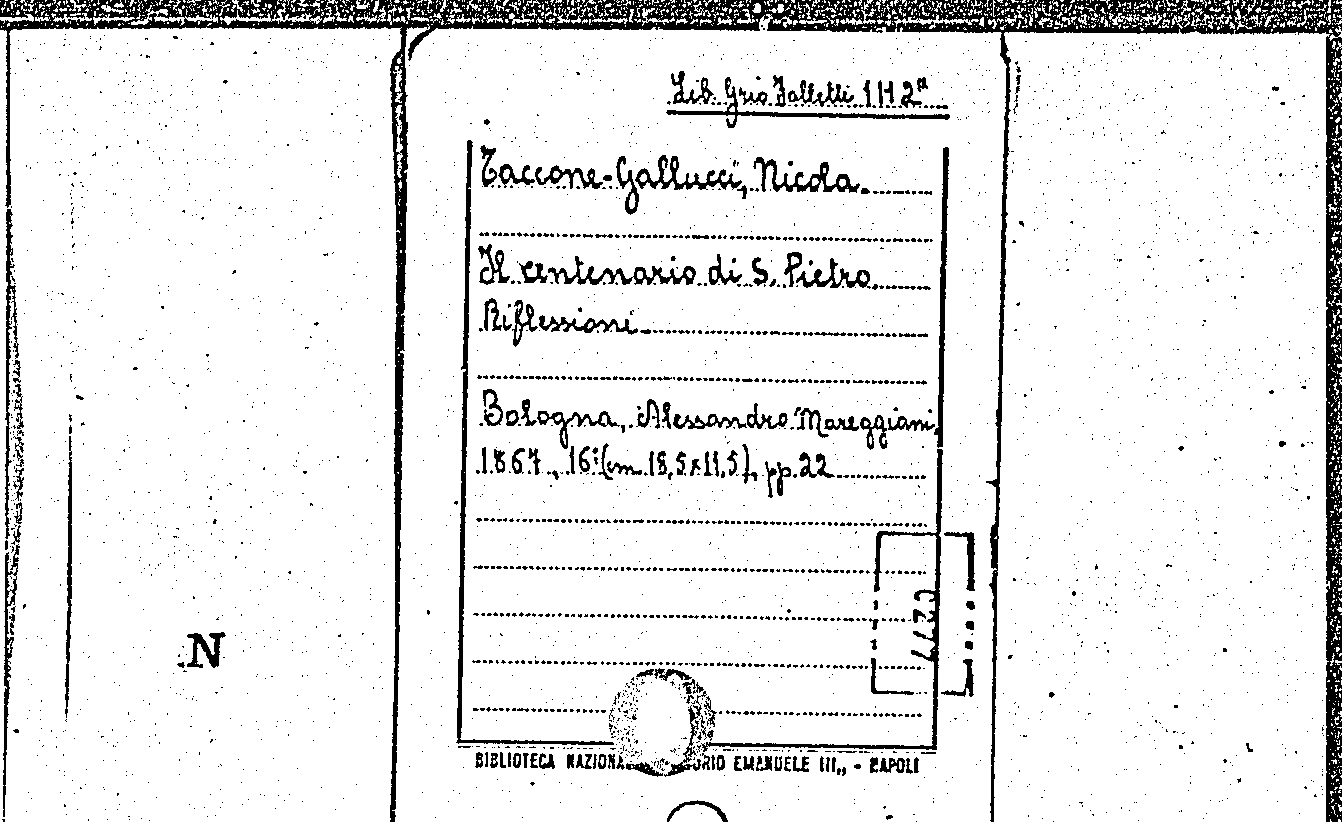 Lib. Grio Falletti 1112ª
Taccone-Gallucci, Nicola.
Il centenario di S. Pietro.
Riflessioni.
Bologna, Alessandro Mareggiani,
1867, 16° (cm. 18,5x11,5), pp. 22
C277
N
BIBLIOTECA EMANUELE III,, - NAPOLI